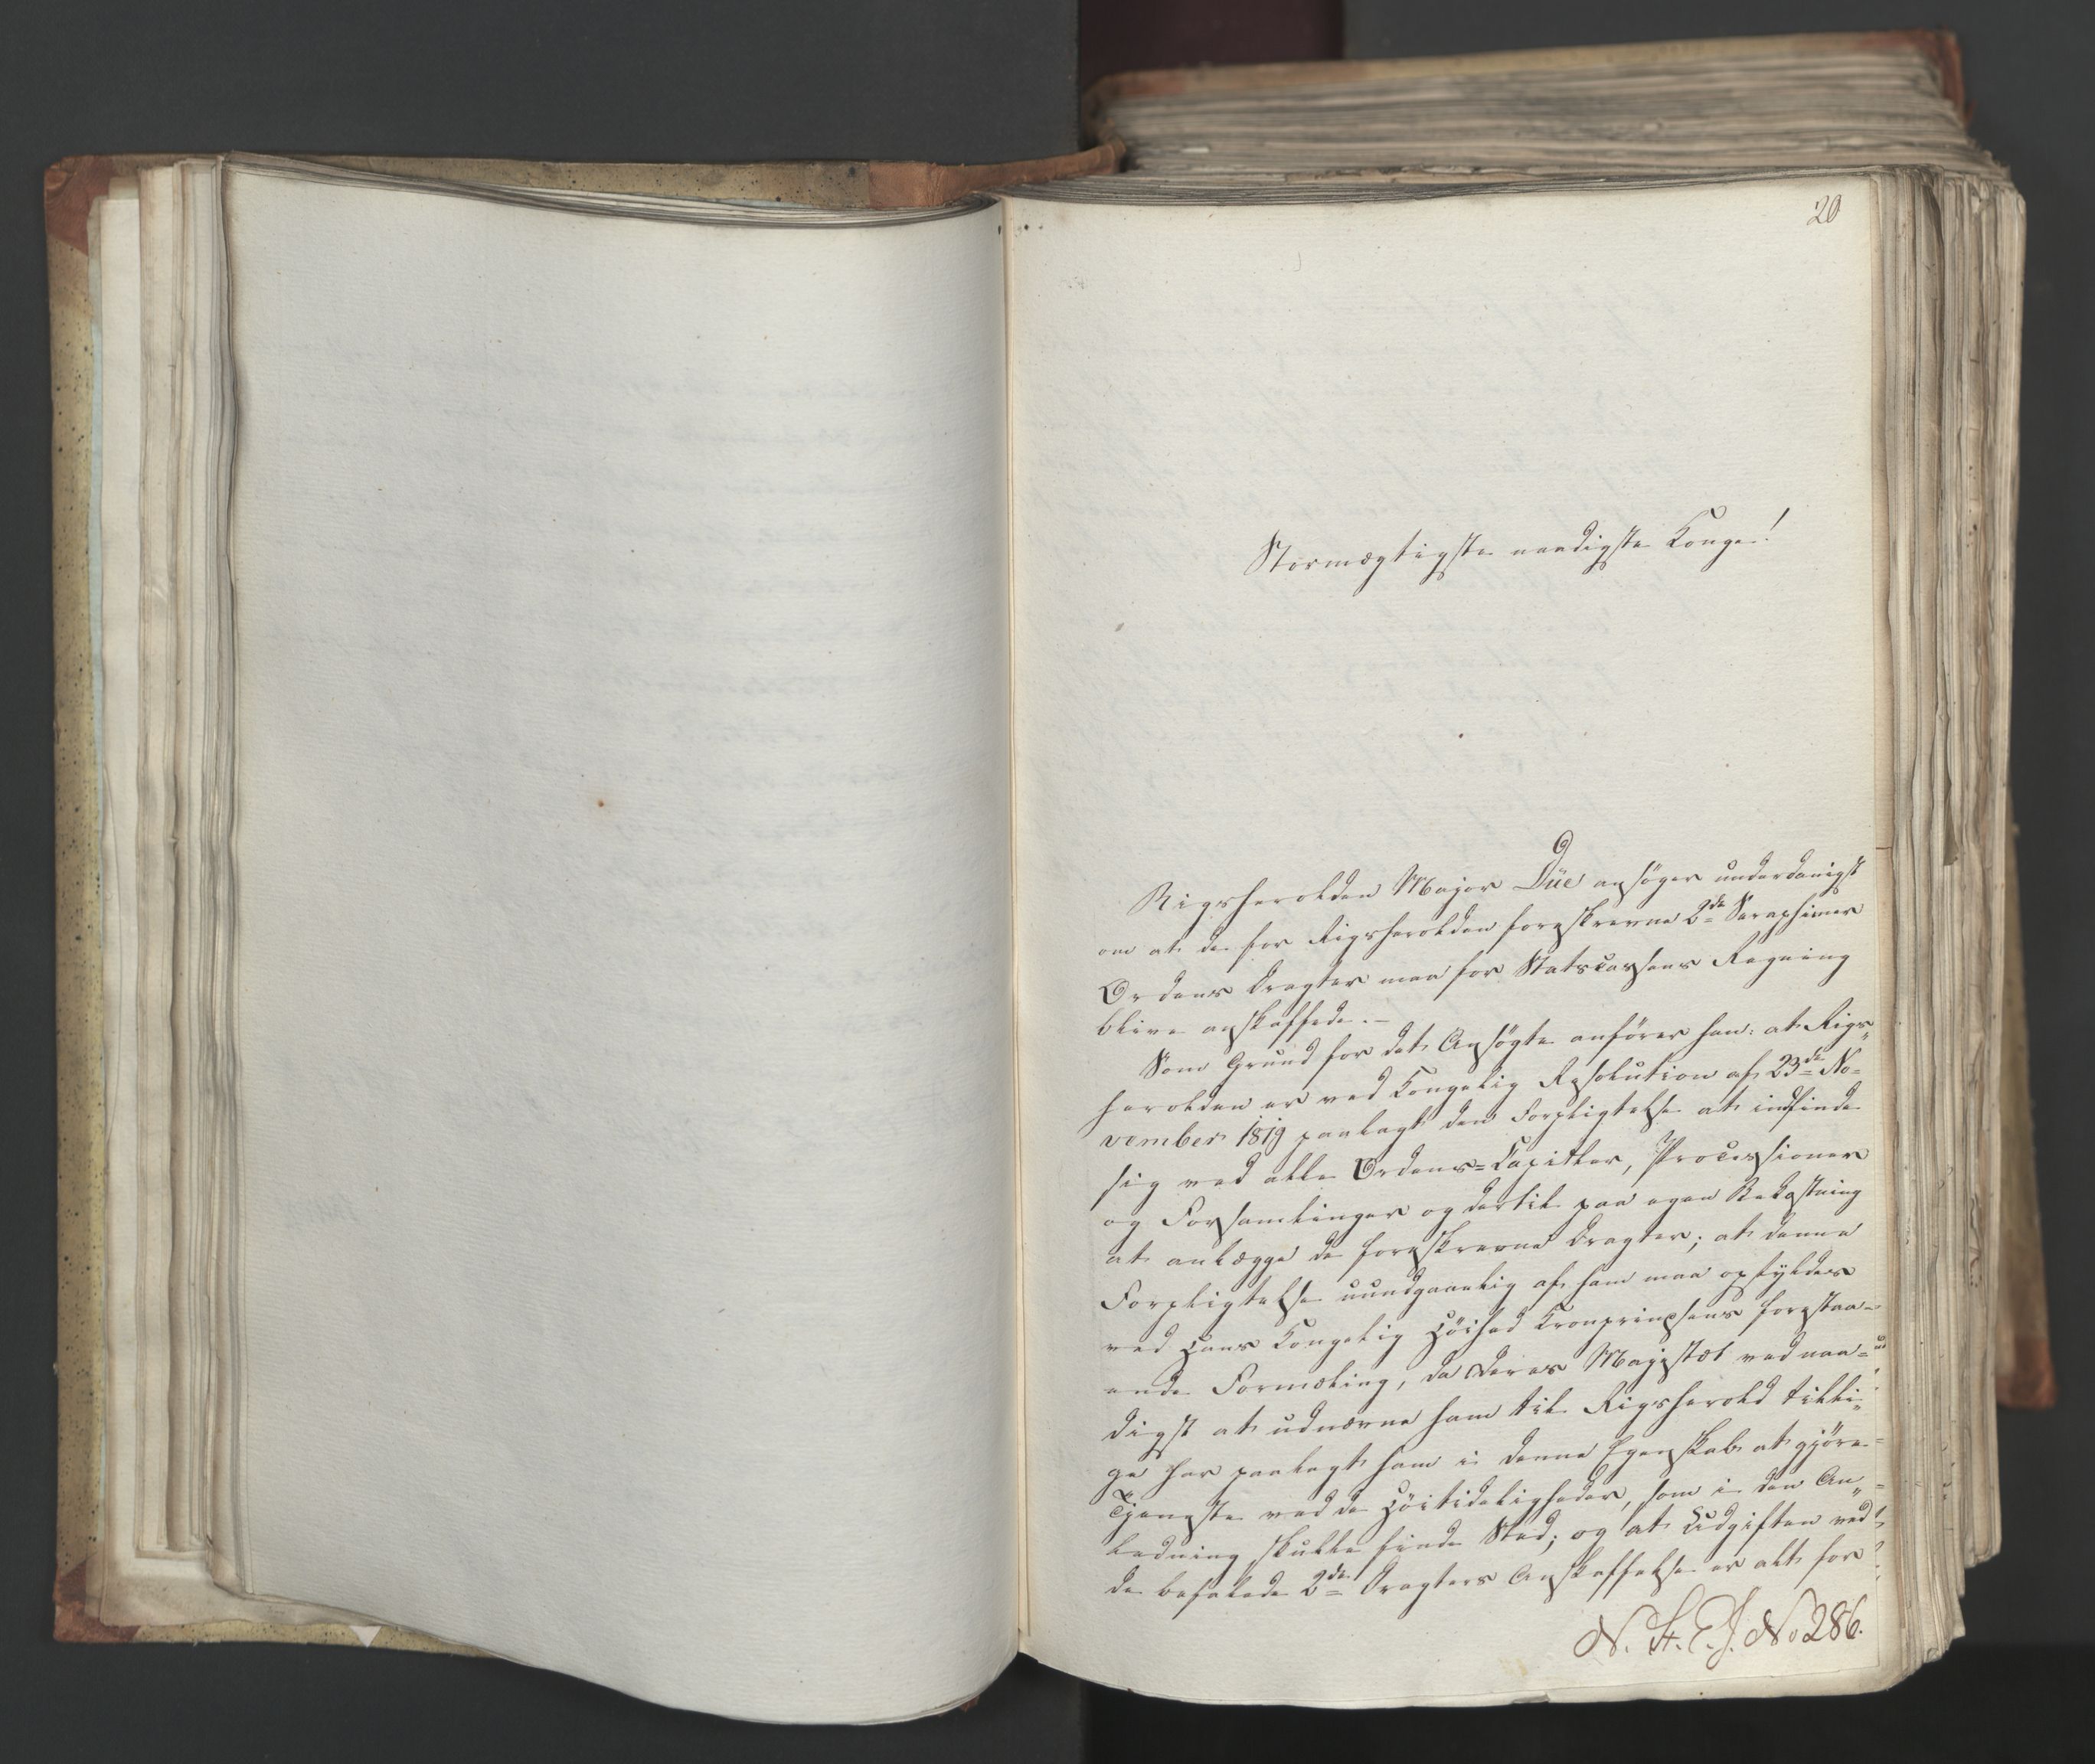 20
Stormægtigste naadigste Konge!
Rigsherolden Major Düe ansøger underdanigst
om at de for Rigsherolden foreskrevne 2de Seraphimer
Ordens Dragter maa for Statscassens Regning
blive anskaffede. –
Som Grund for det Ansøgte anfører han: at Rigs„
herolden er ved Kongelig Resolution af 23de No=
vember 1819 paalagt den Forpligtelse at indfinde
sig ved alle Ordens=Capitler, Processioner
og Forsamlinger og dertil paa egen Bekostning
at anlægge de foreskrevne Dragter; at denne
Forpligtelse uundgaaelig af ham maa opfyldes
ved Hans Kongelig Höihed Kronprindsens forestaa=
ende Formæling, da Deres Majestæt ved naa=
digst at udnævne ham til Rigsherold tilli„
ge har paalagt ham i denne Egenskab at gjøre
Tjeneste ved de Höitideligheder, som i den An„
ledning skulle finde Sted; og at Udgiften ved
de befalede 2de Dragters Anskaffelse er alt for
N. St. E. J. No 286.